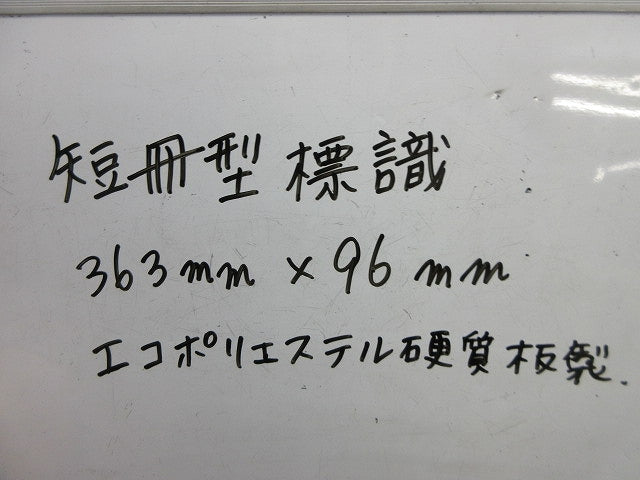 短冊型標識
363mm×96mm
エコポリエステル硬質板製.